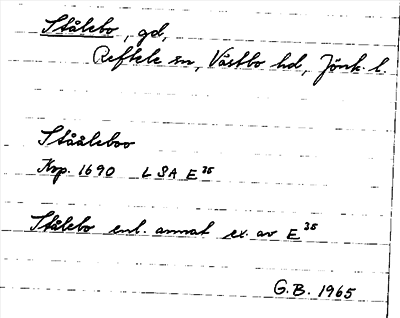 Stålebo, gd,
Reftele sn, Västbo hd, Jönk. l.
Stååleboo
Krp. 1690 LSA E 35
Stålebo enl. annat ex. av E 35
G.B. 1965